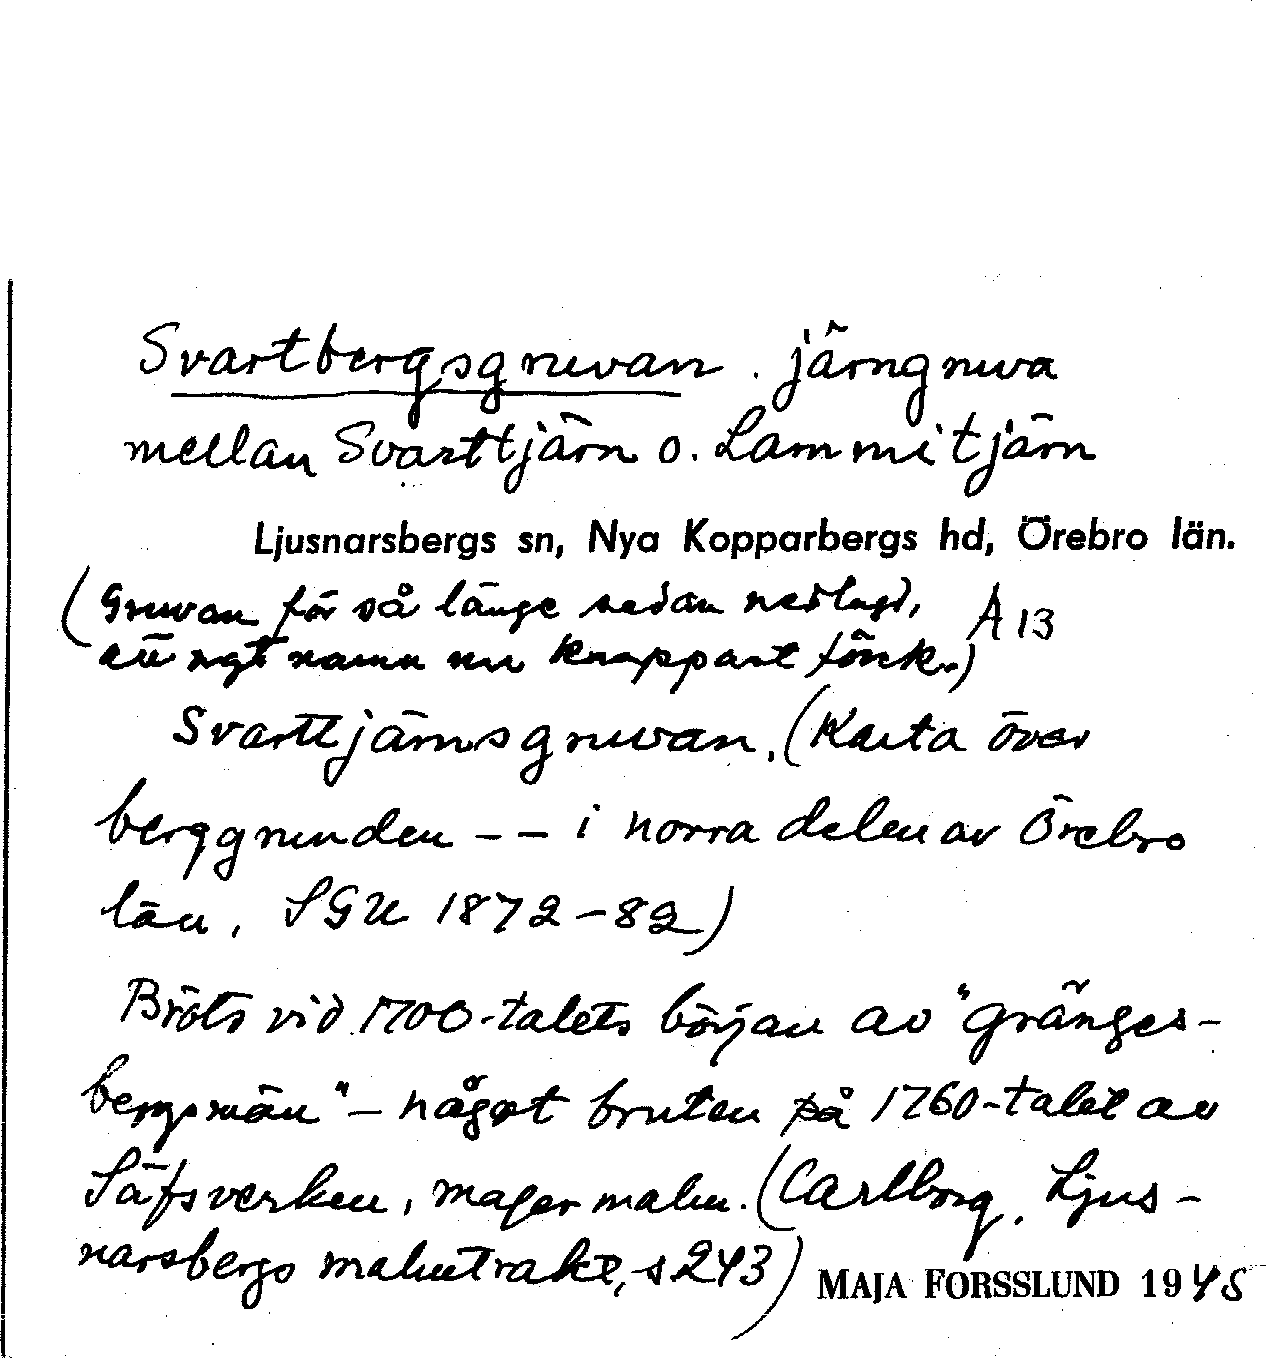 Svartbergsgruvan. järngruva
mellan Svarttjärn o. Lammitjärn
Ljusnarsbergs sn, Nya Kopparbergs hd, Örebro län.
(Gruvan för så länge sedan nedlagd, A 13
att ngt namn nu knappast förek.)
Svarttjärnsgruvan. (Karta över
berggrunden -- i norra delen av Örebro
län, SGU 1872-82)
Bröts vid 1700-talets början av "gränges-
bergsmän" - något bruten på 1760-talet av
Säfsverken, mager malm. (Carlborg, Ljus-
narsbergs malmtrakt, s 243) MAJA FORSSLUND 1945